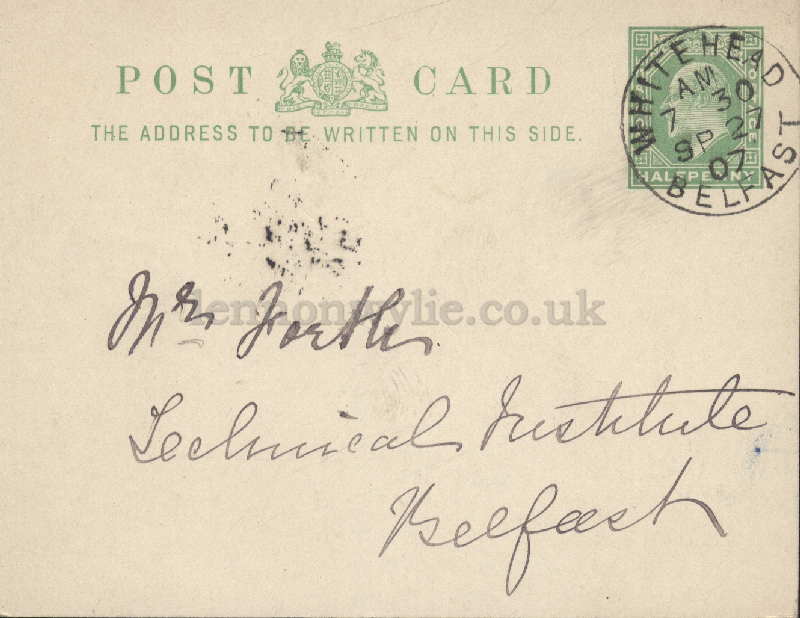 POST CARD
THE ADDRESS TO BE WRITTEN ON THIS SIDE.
HALFPENNY
WHITEHEAD
AM
7 30
SP 27
07
BELFAST
lennonwylie.co.uk
Mr Forth
Technical Institute
Belfast